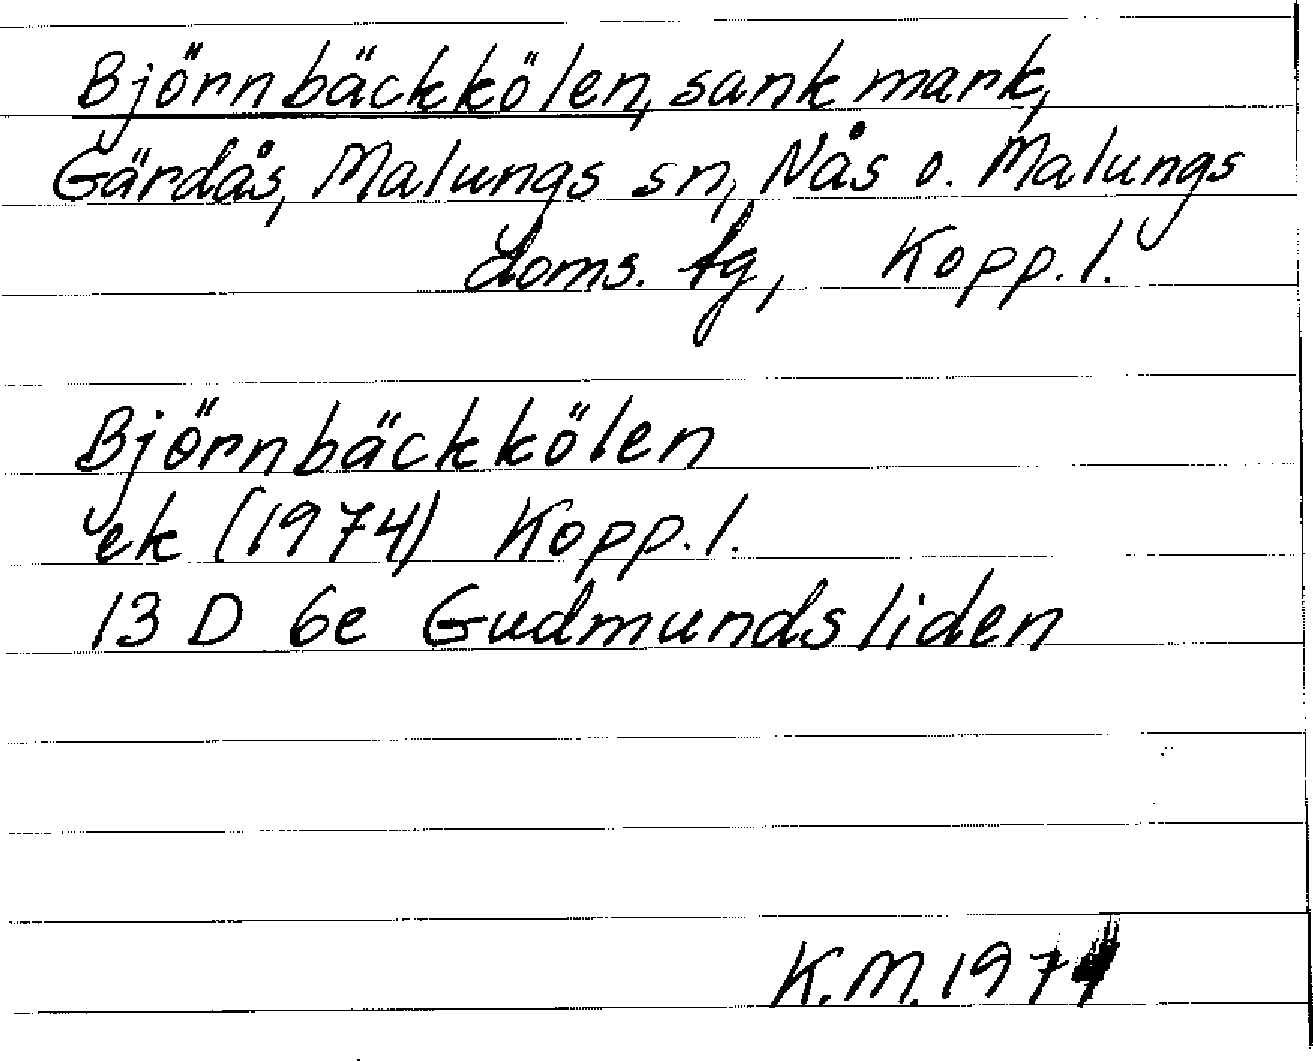 Björnbäckkölen, sank mark,
Gärdås, Malungs sn, Nås o. Malungs
doms. tg, Kopp. l.
Björnbäckkölen
ek (1974) Kopp. l.
13 D 6e Gudmundsliden
K.M. 1974